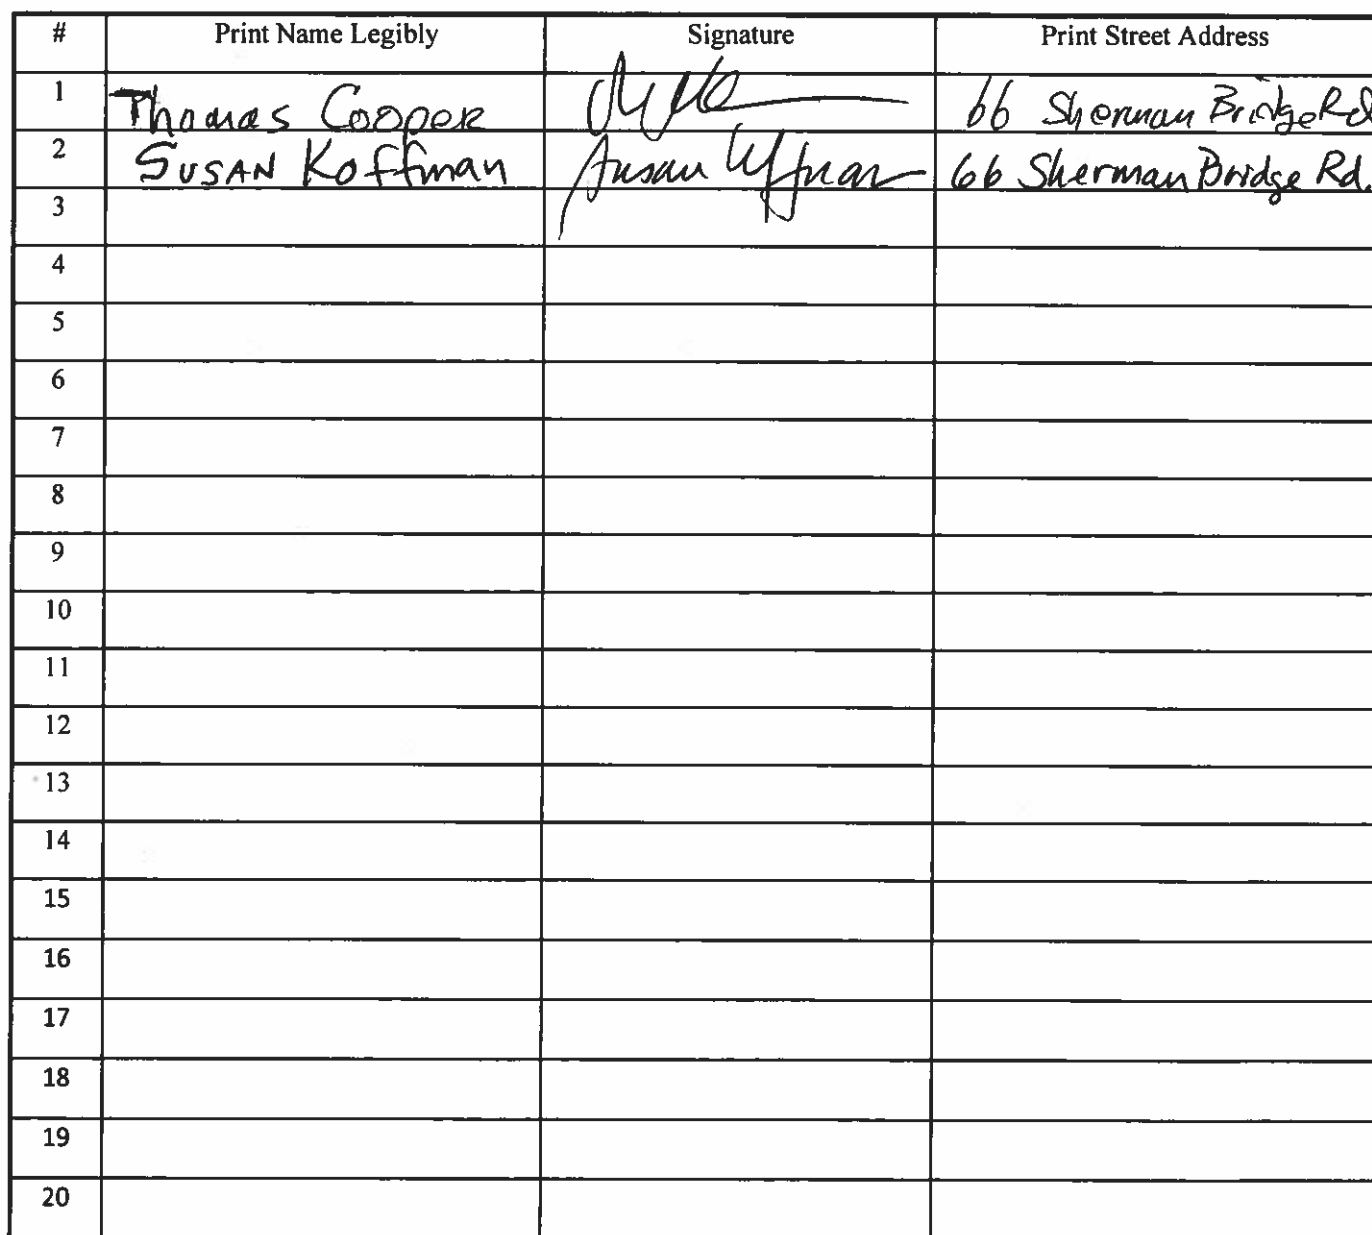 # Print Name Legibly Signature Print Street Address
1 Thomas Cooper 66 Sherman Bridge Rd
2 SUSAN Koffman Susan Koffman 66 Sherman Bridge Rd.
3
4
5
6
7
8
9
10
11
12
13
14
15
16
17
18
19
20